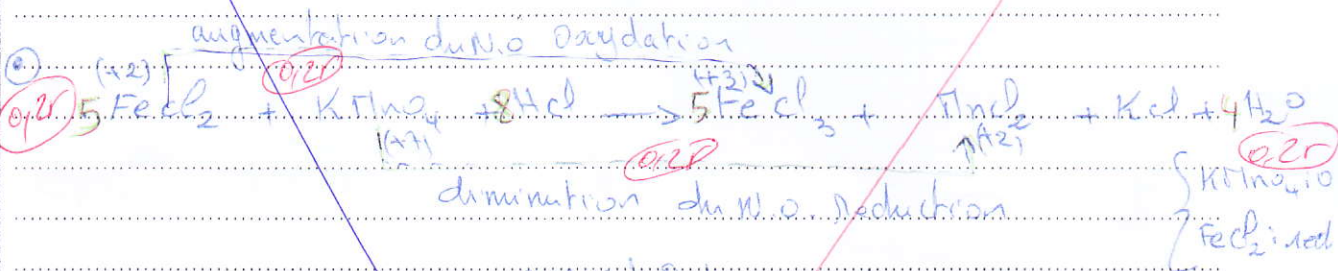 augmentation du N.O Oxydation
(+2) 0,25 (+3)
0,25 5 FeCl₂ + KMnO₄ + 8 HCl → 5 FeCl₃ + MnCl₂ + KCl + 4 H₂O
(+7) 0,25 (+2) 0,25
diminution du N.O. Reduction { KMnO₄ : O
FeCl₂ : red